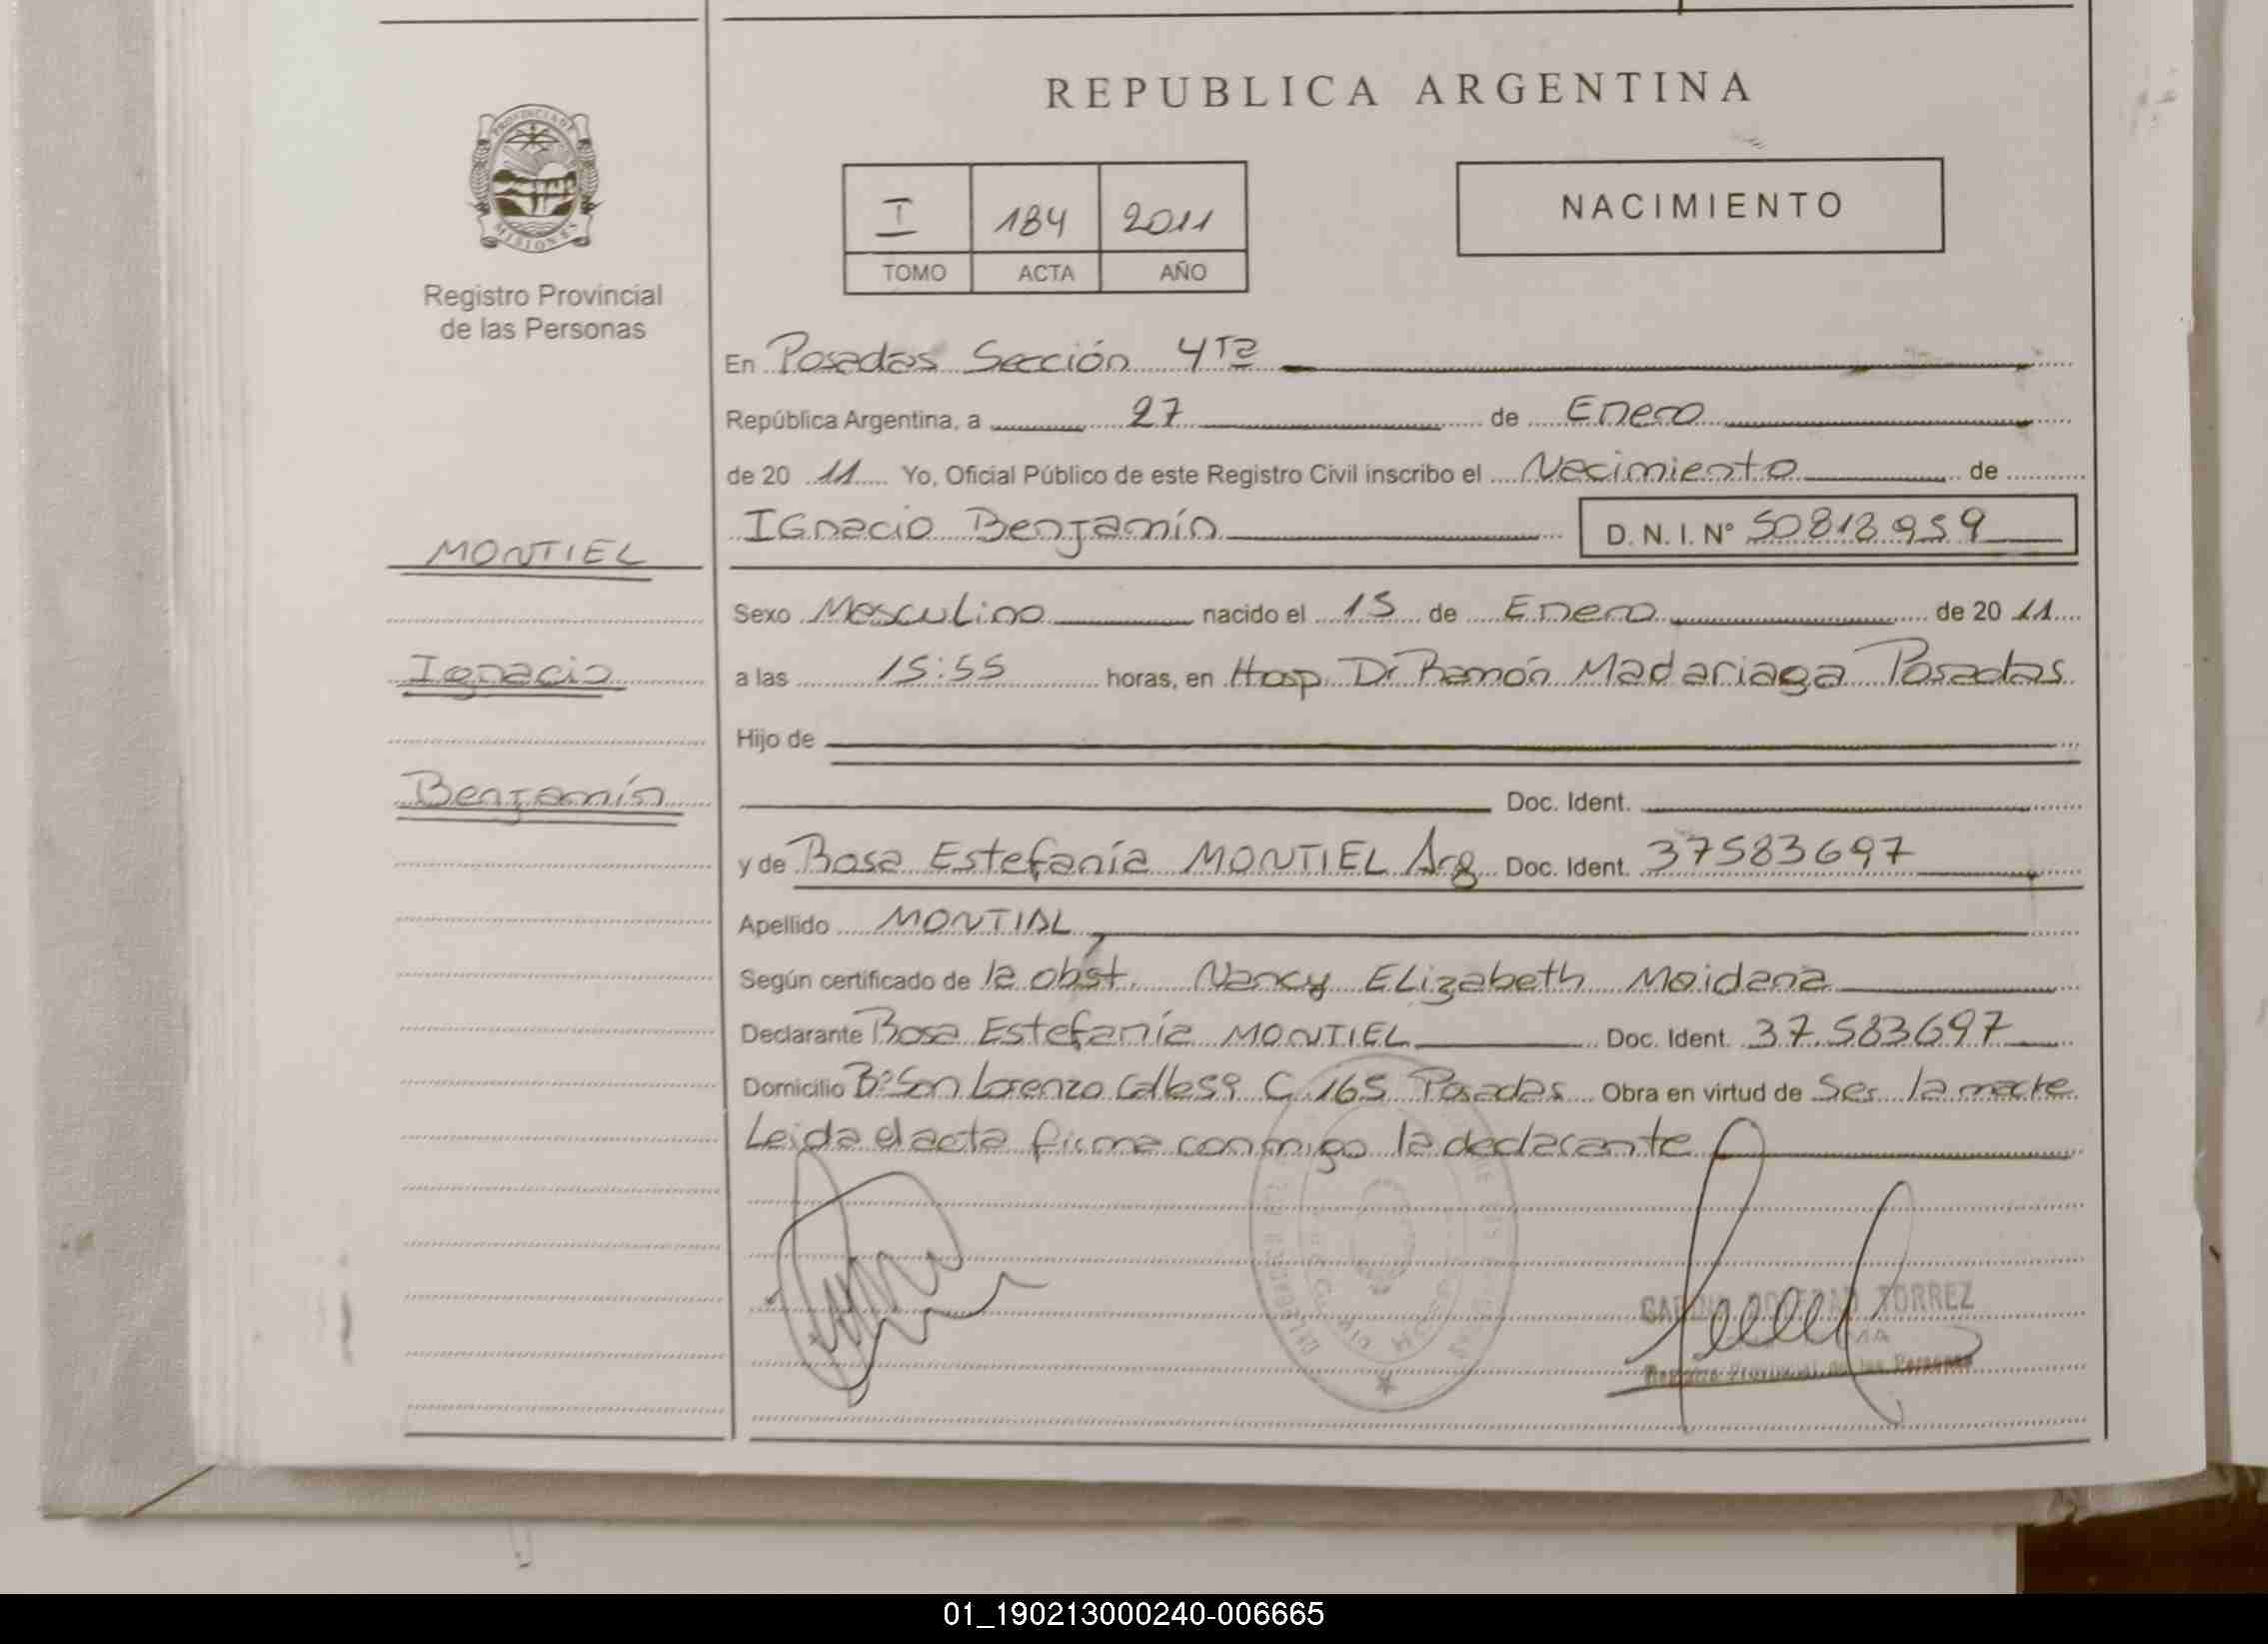 REPUBLICA ARGENTINA
PROVINCIA DE
MISIONES
Registro Provincial
de las Personas
I 184 2011
TOMO ACTA AÑO
NACIMIENTO
En Posadas Sección 4ta
República Argentina, a 27 de Enero
de 20 11 Yo, Oficial Público de este Registro Civil inscribo el Nacimiento de
Ignacio Benjamín D. N. I. Nº 50818959
MONTIEL
Ignacio
Benjamín
Sexo Masculino nacido el 15 de Enero de 20 11
a las 15:55 horas, en Hosp. Dr Ramón Madariaga Posadas
Hijo de
Doc. Ident.
y de Rosa Estefanía MONTIEL Arg Doc. Ident. 37583697
Apellido MONTIAL
Según certificado de la obst. Nancy Elizabeth Maidana
Declarante Rosa Estefanía MONTIEL Doc. Ident. 37.583697
Domicilio Bº San Lorenzo Calle 59 C 165 Posadas Obra en virtud de Ser la madre
Leida el acta firma conmigo la declarante
TORREZ
Registro Provincial de las Personas
01_190213000240-006665